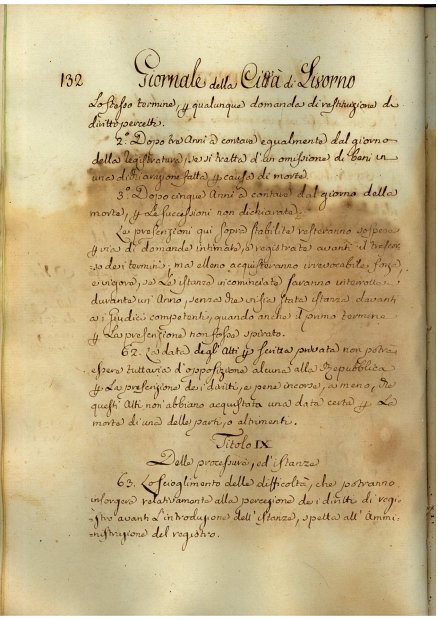 132 Giornale della Città di Livorno
Lo stesso termine, p qualunque domanda di restituzione di
diritti percetti.
2.° Dopo tre Anni a contare egualmente dal giorno
della registratura, se si tratta d'un omissione di beni in
una dichiarazione fatta p causa di morte.
3.° Dopo cinque Anni a contare dal giorno della
morte, p Le successioni non dichiarate.
Le prescrizioni qui sopra stabilite resteranno sospese
p via di domande intimate, e registrate avanti il trascor-
so dei termini; ma elleno acquisteranno irrevocabile forza,
e vigore, se Le istanze incominciate saranno interrotte
durante un Anno, senza che vi sia stata istanza davanti
a i Giudici competenti, quando anche il primo termine
p La prescrizione non fosse spirato.
62. La data degl'Atti p scritta privata non potrà
essere tuttavia d'opposizione alcuna alla Repubblica
p La prescrizione dei diritti, e pene incorse, a meno, che
questi Atti non abbiano acquistata una data certa p La
morte di una delle parti, o altrimenti.
Titolo IX
Delle processure, ed'istanze
63. Lo scioglimento delle difficoltà, che potranno
insorgere relativamente alla percezione de i diritti di regi-
stro avanti L'introduzione dell'istanze, spetta all'Ammi-
nistrazione del registro.